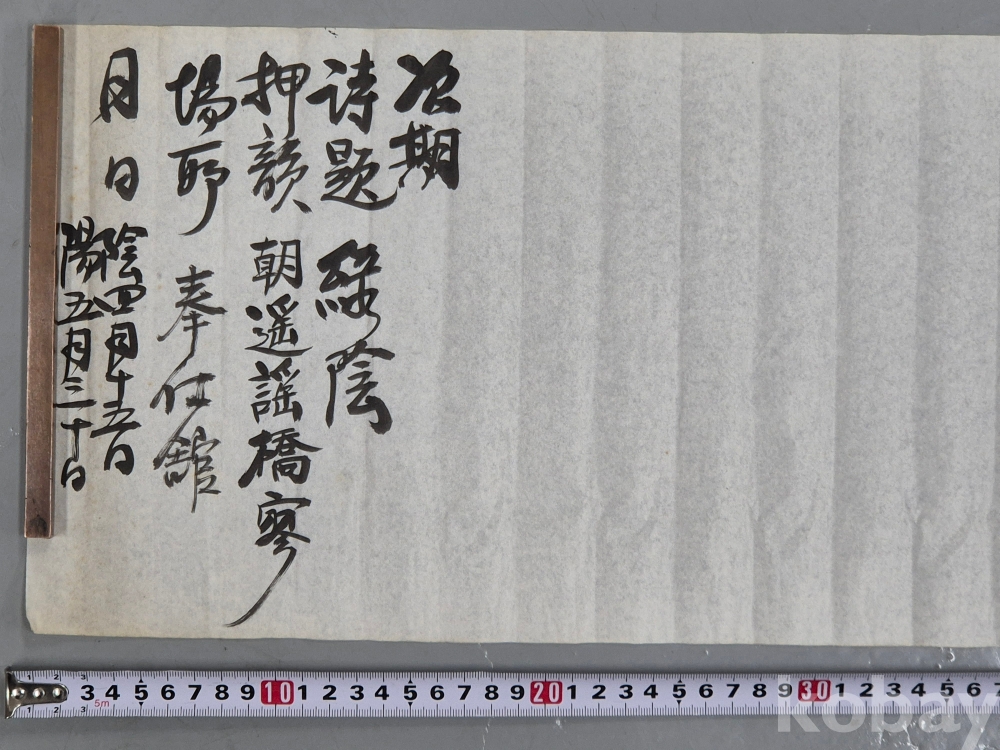 次期
詩題 綠陰
押韻 朝遥謡橋寥
場所 奉仕舘
月日 陰四月十五日
陽五月三十日
3 4 5 6 7 8 9 10 1 2 3 4 5 6 7 8 9 20 1 2 3 4 5 6 7 8 9 30 1 2 3 4 5 6 7
5m
kobay